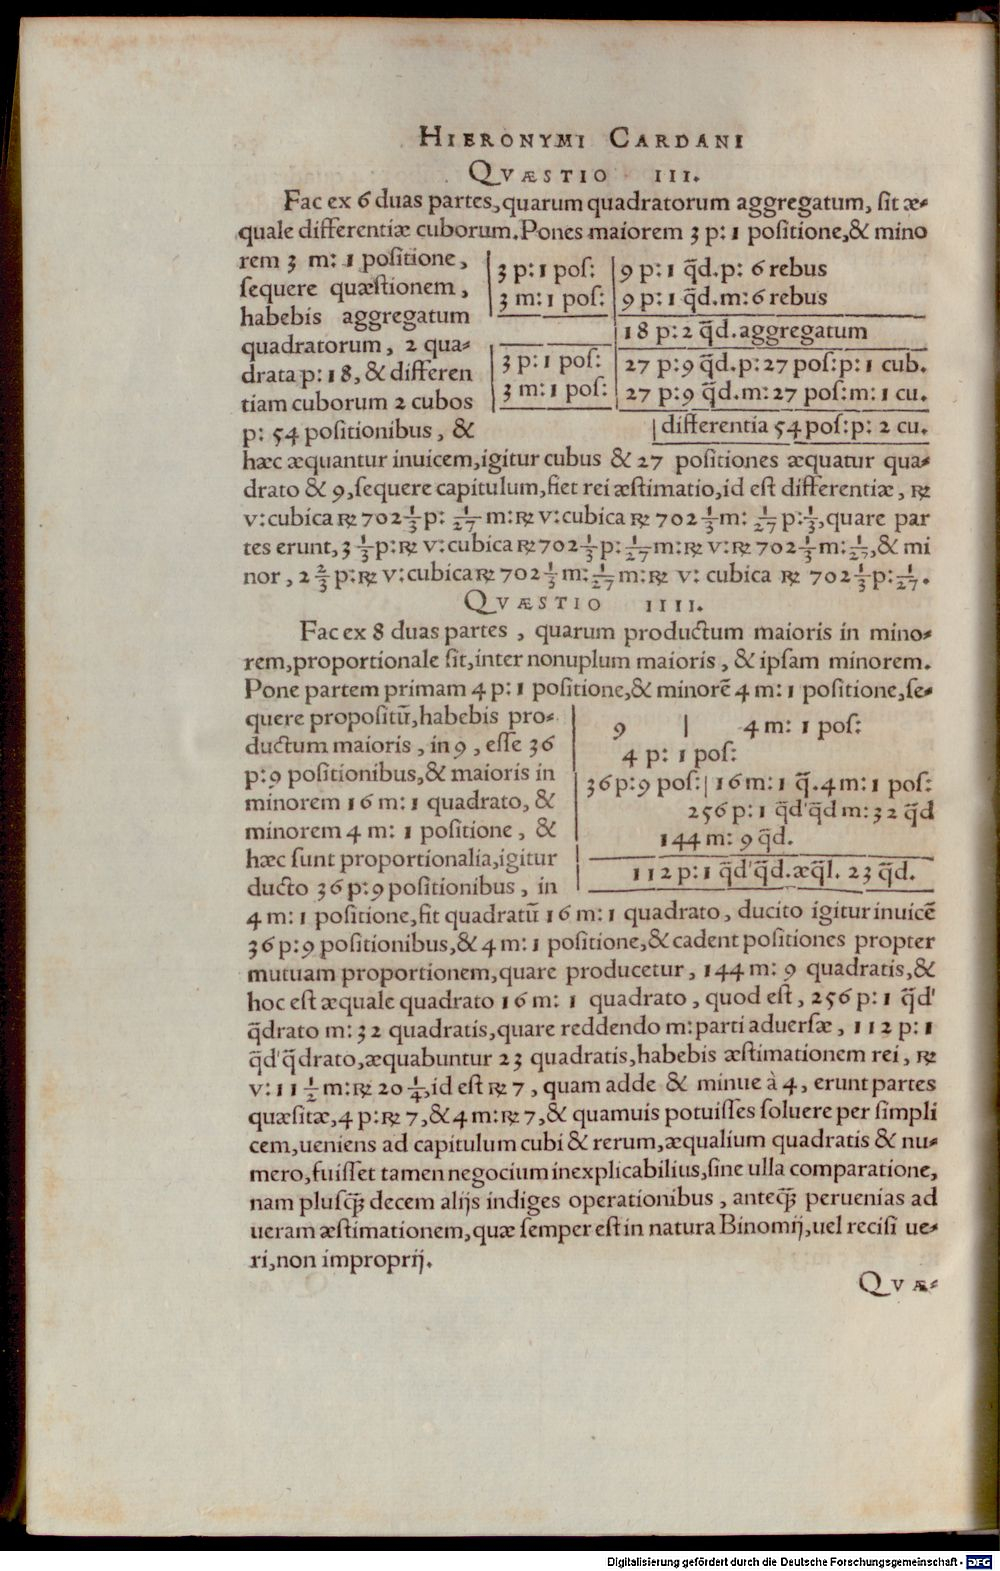 HIERONYMI CARDANI
QVÆSTIO III.
Fac ex 6 duas partes, quarum quadratorum aggregatum, sit æ-
quale differentiæ cuborum. Pones maiorem 3 p: 1 positione, & mino
rem 3 m: 1 positione,
sequere quæstionem,
habebis aggregatum
quadratorum, 2 qua-
drata p: 18, & differen
tiam cuborum 2 cubos
p: 54 positionibus, &
3 p: 1 pos: | 9 p: 1 q̃d. p: 6 rebus
3 m: 1 pos: | 9 p: 1 q̃d. m: 6 rebus
18 p: 2 q̃d. aggregatum
3 p: 1 pos: | 27 p: 9 q̃d. p: 27 pos: p: 1 cub.
3 m: 1 pos: | 27 p: 9 q̃d. m: 27 pos: m: 1 cu.
differentia 54 pos: p: 2 cu.
hæc æquantur inuicem, igitur cubus & 27 positiones æquatur qua-
drato & 9, sequere capitulum, fiet rei æstimatio, id est differentiæ, ℞
v: cubica ℞ 702 1/3 p: 1/27 m: ℞ v: cubica ℞ 702 1/3 m: 1/27 p: 1/3, quare par
tes erunt, 3 1/3 p: ℞ v: cubica ℞ 702 1/3 p: 1/27 m: ℞ v: ℞ 702 1/3 m: 1/27, & mi
nor, 2 2/3 p: ℞ v: cubica ℞ 702 1/3 m: 1/27 m: ℞ v: cubica ℞ 702 1/3 p: 1/27.
QVÆSTIO IIII.
Fac ex 8 duas partes, quarum productum maioris in mino-
rem, proportionale sit, inter nonuplum maioris, & ipsam minorem.
Pone partem primam 4 p: 1 positione, & minorē 4 m: 1 positione, se-
quere propositū, habebis pro-
ductum maioris, in 9, esse 36
p: 9 positionibus, & maioris in
minorem 16 m: 1 quadrato, &
minorem 4 m: 1 positione, &
hæc sunt proportionalia, igitur
ducto 36 p: 9 positionibus, in
9 | 4 m: 1 pos:
4 p: 1 pos:
36 p: 9 pos: | 16 m: 1 q̃. 4 m: 1 pos:
256 p: 1 q̃d' q̃d m: 32 q̃d
144 m: 9 q̃d.
112 p: 1 q̃d' q̃d. æq̃l. 23 q̃d.
4 m: 1 positione, fit quadratū 16 m: 1 quadrato, ducito igitur inuicē
36 p: 9 positionibus, & 4 m: 1 positione, & cadent positiones propter
mutuam proportionem, quare producetur, 144 m: 9 quadratis, &
hoc est æquale quadrato 16 m: 1 quadrato, quod est, 256 p: 1 q̃d'
q̃drato m: 32 quadratis, quare reddendo m: parti aduersæ, 112 p: 1
q̃d' q̃drato, æquabuntur 23 quadratis, habebis æstimationem rei, ℞
v: 11 1/2 m: ℞ 20 1/4, id est ℞ 7, quam adde & minue à 4, erunt partes
quæsitæ, 4 p: ℞ 7, & 4 m: ℞ 7, & quamuis potuisses soluere per simpli
cem, ueniens ad capitulum cubi & rerum, æqualium quadratis & nu-
mero, fuisset tamen negocium inexplicabilius, sine ulla comparatione,
nam plusq̃ꝫ decem alijs indiges operationibus, anteq̃ꝫ peruenias ad
ueram æstimationem, quæ semper est in natura Binomij, uel recisi ue-
ri, non improprij.
QVÆ-
Digitalisierung gefördert durch die Deutsche Forschungsgemeinschaft - DFG